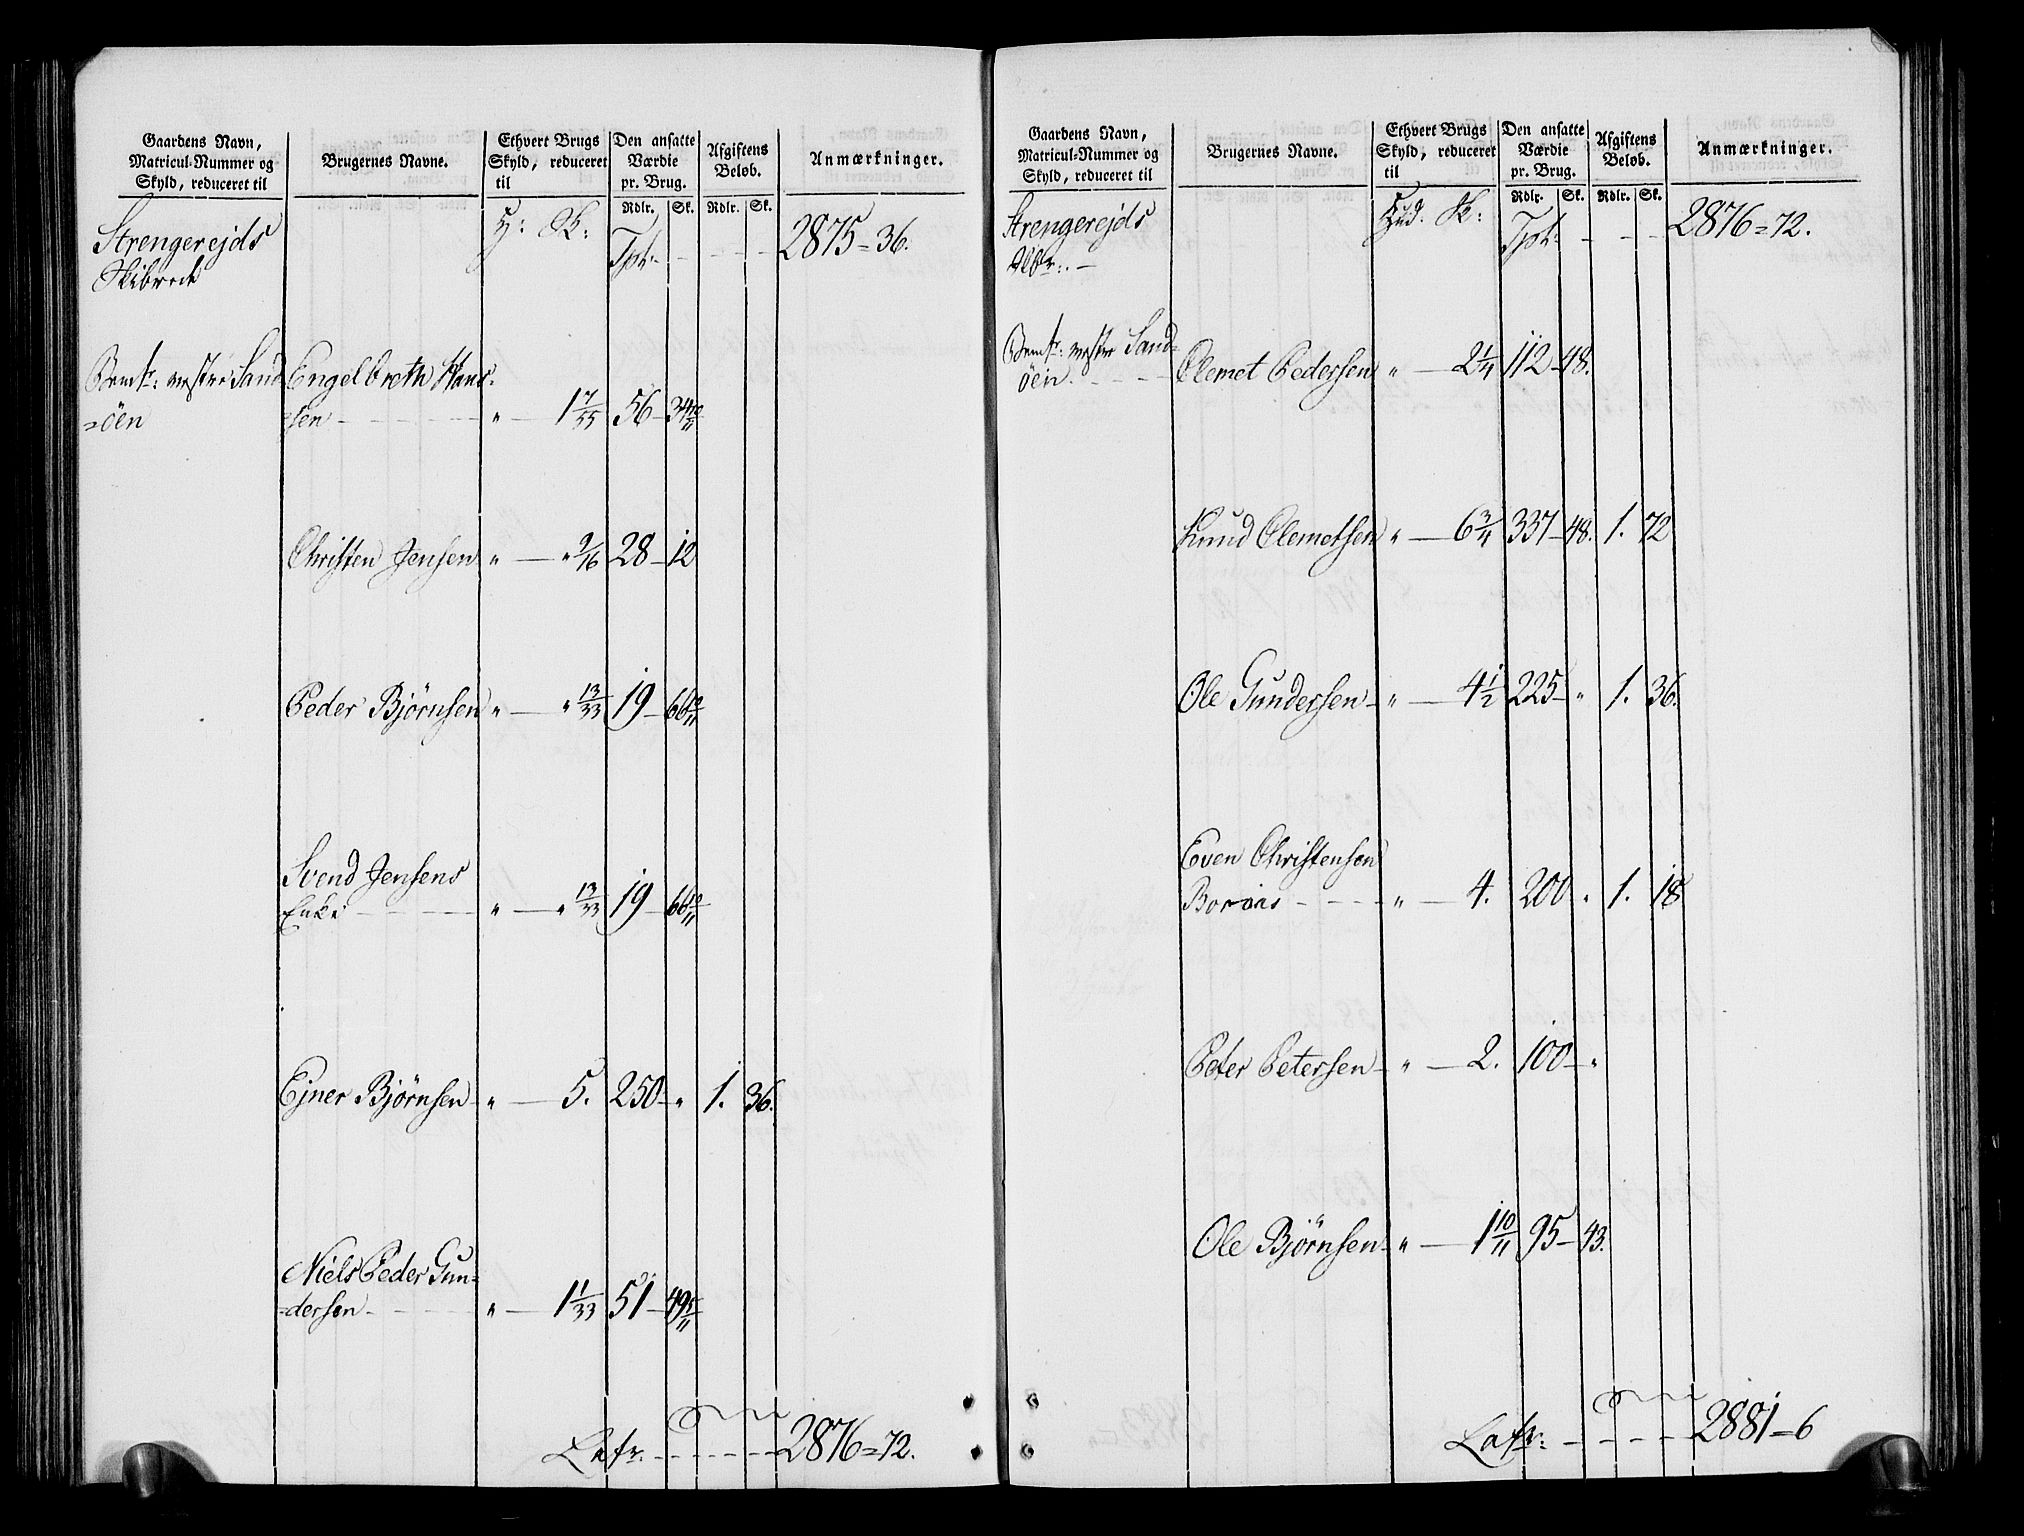 Gaardens Navn,
Matricul-Nummer og
Skyld, reduceret til
Brugernes Navne.
Ethvert Brugs
Skyld, reduceret
til
Den ansatte
Værdie
pr. Brug.
Afgiftens
Beløb.
Anmærkninger.
Rdlr. Sk. Rdlr. Sk.
Strengerejds H: Sk: Tpt: - - - - 2875 = 36.
Skibrede
Bemt: vestre Sand
=öen
Engelbreth Hans-
sen - - - " — 1 7/33 56 — 34 10/11
Christen Jensen " — " 9/16 28 — 12
Peder Bjørnsen " — " 13/33 19 — 66 10/11
Svend Jensens
Enke - - - " — " 13/33 19 — 66 10/11
Ejner Bjørnsen - " — 5. 250 — " 1. 36.
Niels Peder Gun=
=dersen - - - " — 1 1/33 51 — 49 5/11
Latr: - - - - 2876 = 72.
Gaardens Navn,
Matricul-Nummer og
Skyld, reduceret til
Brugernes Navne.
Ethvert Brugs
Skyld, reduceret
til
Den ansatte
Værdie
pr. Brug.
Afgiftens
Beløb.
Anmærkninger.
Rdlr. Sk. Rdlr. Sk.
Strengerejds Hud: Sk: Tpt: - - - - 2876 = 72.
Bemt: vestre Sand=
öen. - - -
Clemet Pedersen " — 2 1/4 112 — 48.
Knud Clemetsen " — 6 3/4 337 — 48. 1. 72
Ole Gundersen - " — 4 1/2 225 — " 1. 36.
Even Christensen
- - - - " — 4. 200 " 1. 18
Peter Petersen - " — 2. 100 — "
Ole Bjørnsen - " — 1 10/11 95 — 43.
Latr: - - - - 2881 — 6